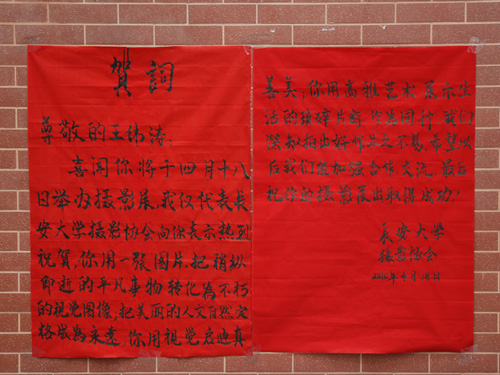 贺詞
尊敬的王纬涛:
喜闻你将于四月十八
日举办摄影展,我仅代表长
安大学摄影协会向你表示热烈
祝贺,你用一張图片,把稍纵
即逝的平凡事物转化為不朽
的视觉图像,把美丽的人文自然定
格成為永遠,你用视觉启迪真
善美,你用高雅艺术展示生
活的琐碎片断,作為同行,我们
深知拍出好作品之不易,希望以
后我们能加强合作交流,最后
祝你的摄影展出取得成功!
长安大学
摄影协会
年4月18日